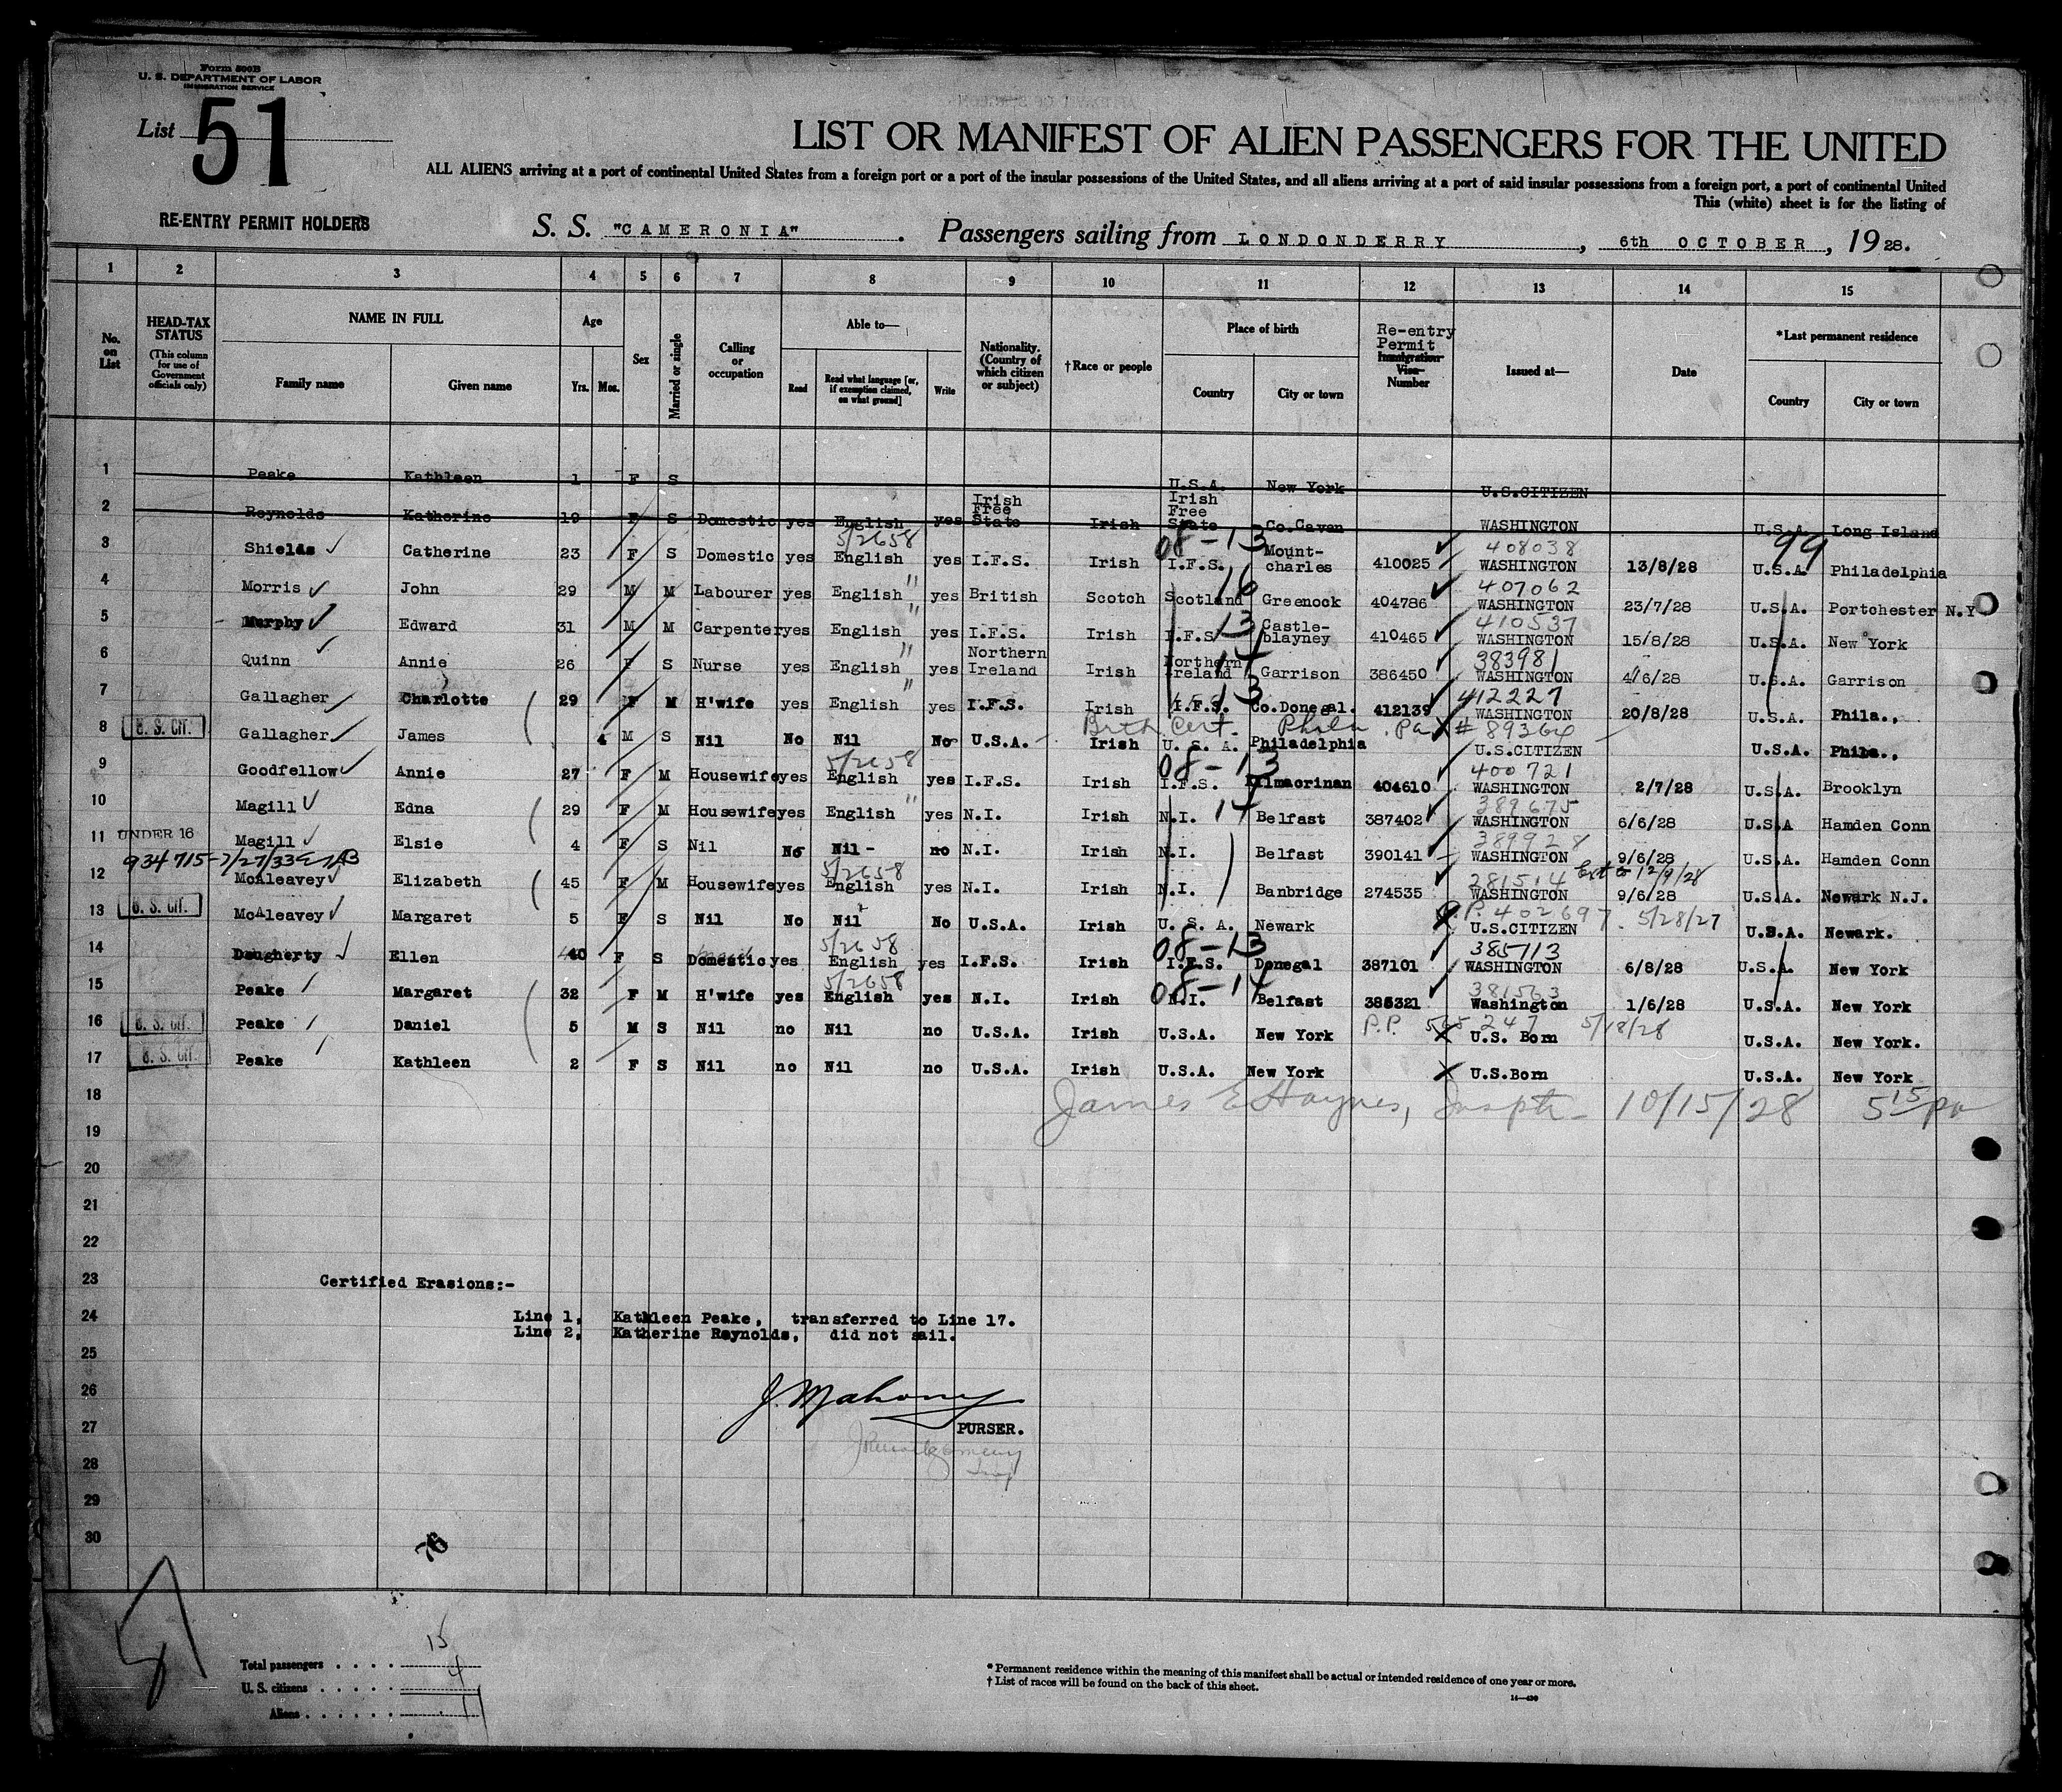 Form 500B
U. S. DEPARTMENT OF LABOR
IMMIGRATION SERVICE
List 51
LIST OR MANIFEST OF ALIEN PASSENGERS FOR THE UNITED
ALL ALIENS arriving at a port of continental United States from a foreign port or a port of the insular possessions of the United States, and all aliens arriving at a port of said insular possessions from a foreign port, a port of continental United
This (white) sheet is for the listing of
RE-ENTRY PERMIT HOLDERS
S. S. "CAMERONIA". Passengers sailing from LONDONDERRY, 6th OCTOBER, 1928.
1 2 3 4 5 6 7 8 9 10 11 12 13 14 15
No. on List
HEAD-TAX STATUS (This column for use of Government officials only)
NAME IN FULL
Family name Given name
Age
Yrs. Mos.
Sex
Married or single
Calling or occupation
Able to—
Read Read what language [or, if exemption claimed, on what ground] Write
Nationality. (Country of which citizen or subject)
†Race or people
Place of birth
Country City or town
Re-entry Permit Immigration Visa Number
Issued at—
Date
*Last permanent residence
Country City or town
1 Peake Kathleen 1 F S U.S.A. New York U.S.CITIZEN
2 Reynolds Katherine 19 F S Domestic yes English yes Irish Free State Irish Irish Free State Co.Cavan WASHINGTON U.S.A. Long Island
5/2658 08-13 408038 99
3 Shields Catherine 23 F S Domestic yes English yes I.F.S. Irish I.F.S. Mount-charles 410025 WASHINGTON 13/8/28 U.S.A. Philadelphia
" 16 407062
4 Morris John 29 M M Labourer yes English yes British Scotch Scotland Greenock 404786 WASHINGTON 23/7/28 U.S.A. Portchester N.Y
" 13 410537
5 Murphy Edward 31 M M Carpenter yes English yes I.F.S. Irish I.F.S. Castle-blayney 410465 WASHINGTON 15/8/28 U.S.A. New York
" 14 383981
6 Quinn Annie 26 F S Nurse yes English yes Northern Ireland Irish Northern Ireland Garrison 386450 WASHINGTON 4/6/28 U.S.A. Garrison
" 13 412227
7 Gallagher Charlotte 29 F M H'wife yes English yes I.F.S. Irish I.F.S. Co.Donegal. 412139 WASHINGTON 20/8/28 U.S.A. Phila.,
Birth Cert. Phila. Pa. # 89364
8 U. S. CIT. Gallagher James 4 M S Nil No Nil No U.S.A. Irish U. S. A. Philadelphia U.S.CITIZEN U.S.A. Phila.,
5/2658 08-13 400721
9 Goodfellow Annie 27 F M Housewife yes English yes I.F.S. Irish I.F.S. Kilmacrinan 404610 WASHINGTON 2/7/28 U.S.A. Brooklyn
" 14 389675
10 Magill Edna 29 F M Housewife yes English yes N.I. Irish N.I. Belfast 387402 WASHINGTON 6/6/28 U.S.A Hamden Conn
389928
11 UNDER 16 Magill Elsie 4 F S Nil No Nil - no N.I. Irish N.I. Belfast 390141 WASHINGTON 9/6/28 U.S.A. Hamden Conn
934715-7/27/33 5/2658 281514 Ext to 12/9/28
12 McAleavey Elizabeth 45 F M Housewife yes English yes N.I. Irish N.I. Banbridge 274535 WASHINGTON 9/6/28 U.S.A. Newark N.J.
P.P. 402697 5/28/27
13 U. S. CIT. McAleavey Margaret 5 F S Nil No Nil No U.S.A. Irish U. S. A. Newark U.S.CITIZEN U.S.A. Newark.
5/2658 08-13 385713
14 Dougherty Ellen 40 F S Domestic yes English yes I.F.S. Irish I.F.S. Donegal 387101 WASHINGTON 6/8/28 U.S.A. New York
5/2658 08-14 381563
15 Peake Margaret 32 F M H'wife yes English yes N.I. Irish N.I. Belfast 385321 Washington 1/6/28 U.S.A. New York
16 U. S. CIT. Peake Daniel 5 M S Nil no Nil no U.S.A. Irish U.S.A. New York P.P. 565247 U.S. Born 5/18/28 U.S.A. New York.
17 U. S. CIT. Peake Kathleen 2 F S Nil no Nil no U.S.A. Irish U.S.A. New York U.S.Born U.S.A. New York
18 James E Haynes, Insptr 10/15/28 5 15 pm
19
20
21
22
23 Certified Erasions:-
24 Line 1, Kathleen Peake, transferred to Line 17.
Line 2, Katherine Reynolds, did not sail.
25
26 J. Mahony
27 PURSER.
28
29
30
76
Total passengers . . . . 15
U. S. citizens . . . . . 4
Aliens . . . . . . 11
* Permanent residence within the meaning of this manifest shall be actual or intended residence of one year or more.
† List of races will be found on the back of this sheet.
14—430